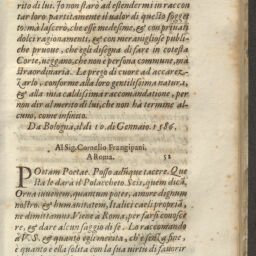 rito di lui. Io non starò ad estendermi in raccon
tar loro partitamente il ualor di questo sogget
to: ma lascerò, che esse medesime, & con priuati
dolci ragionamenti, & con merauigliose publi-
che pruoue, che egli disegna di fare in cotesta
Corte, ueggano, che non è persona commune, ma
straordinaria. Le prego di cuore ad accarez-
zarlo, conforme alla loro gentilissima natura,
& alla mia caldissima raccomandatione, per
non dir al merito di lui, che non ha termine al-
cuno, come infinito.
Da Bologna, al di 10. di Gennaio. 1586.
Al Sig. Cornelio Frangipani.
A Roma. 52
POetam Poetae. Posso adunque tacere. Que
sta le darà il Polarcheto. Seis, quem dicā,
Orna iuuenem, quantum potes, amore dignum
nostro. & humanitatem, Italici caeli propriā,
ne dimittamus. Viene à Roma, per farsi conosce
re, & dare alcun saggio di se. Lo raccomando
à V. S. & quanto egli merita, ch'è senza fine,
& quanto è ella solita con la sua uirtù di fauorir